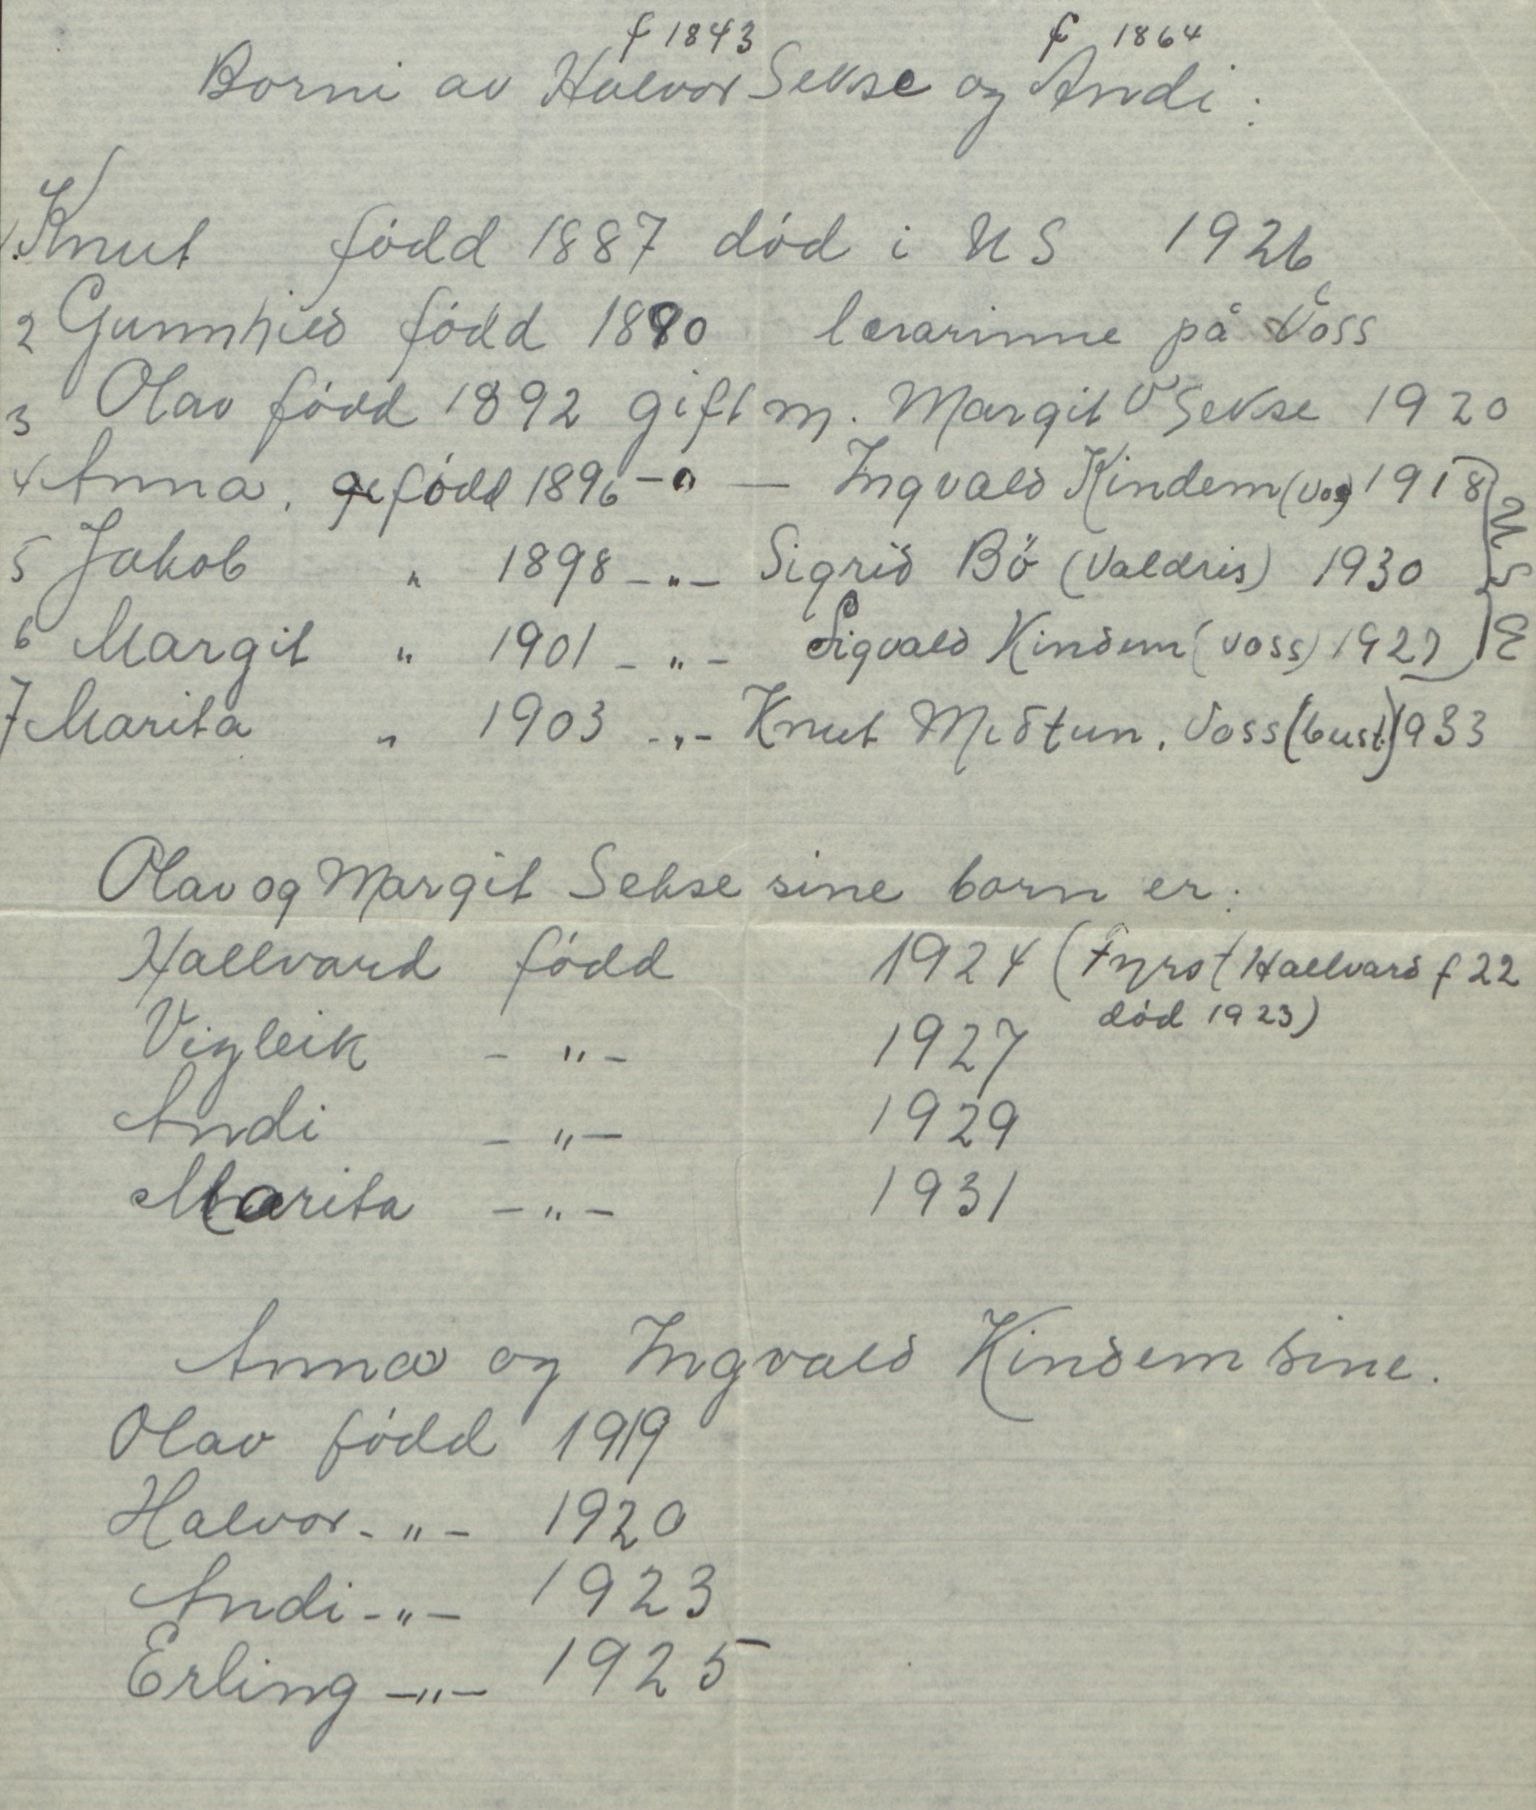 f 1843 f 1864
Borni av Halvor Sekse og Andi:
1. Knut född 1887 död i US 1926
2 Gunnhild född 1890 lærarinne på Voss
3 Olav född 1892 gift m. Margit V Sekse 1920
4 Anna. född 1896 -"- Ingvald Kindem (Voss) 1918
5 Jakob " 1898 -"- Sigrid Bö (Valdris) 1930
6 Margit " 1901 -"- Sigvald Kindem (Voss) 1927
USE
7 Marita " 1903 -"- Knut Midtun, Voss (bust.) 1933
Olav og Margit Sekse sine born er:
Hallvard född 1924 (Fyrst Hallvard f 22
död 1923)
Vigleik -"- 1927
Andi -"- 1929
Marita -"- 1931
Anna og Ingvald Kindem sine.
Olav född 1919
Halvor -"- 1920
Andi -"- 1923
Erling -"- 1925